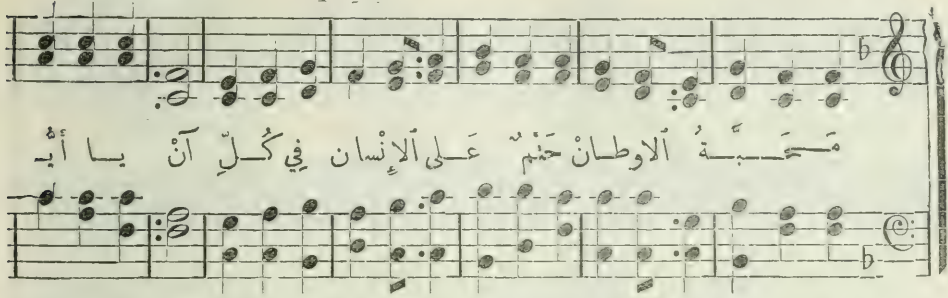 مَـحَـبَّـةُ ٱلاوطـانْ حَتْمٌ عَـلى ٱلْإِنْسان فِي كُـلِّ آنْ يـا أَيُّـ